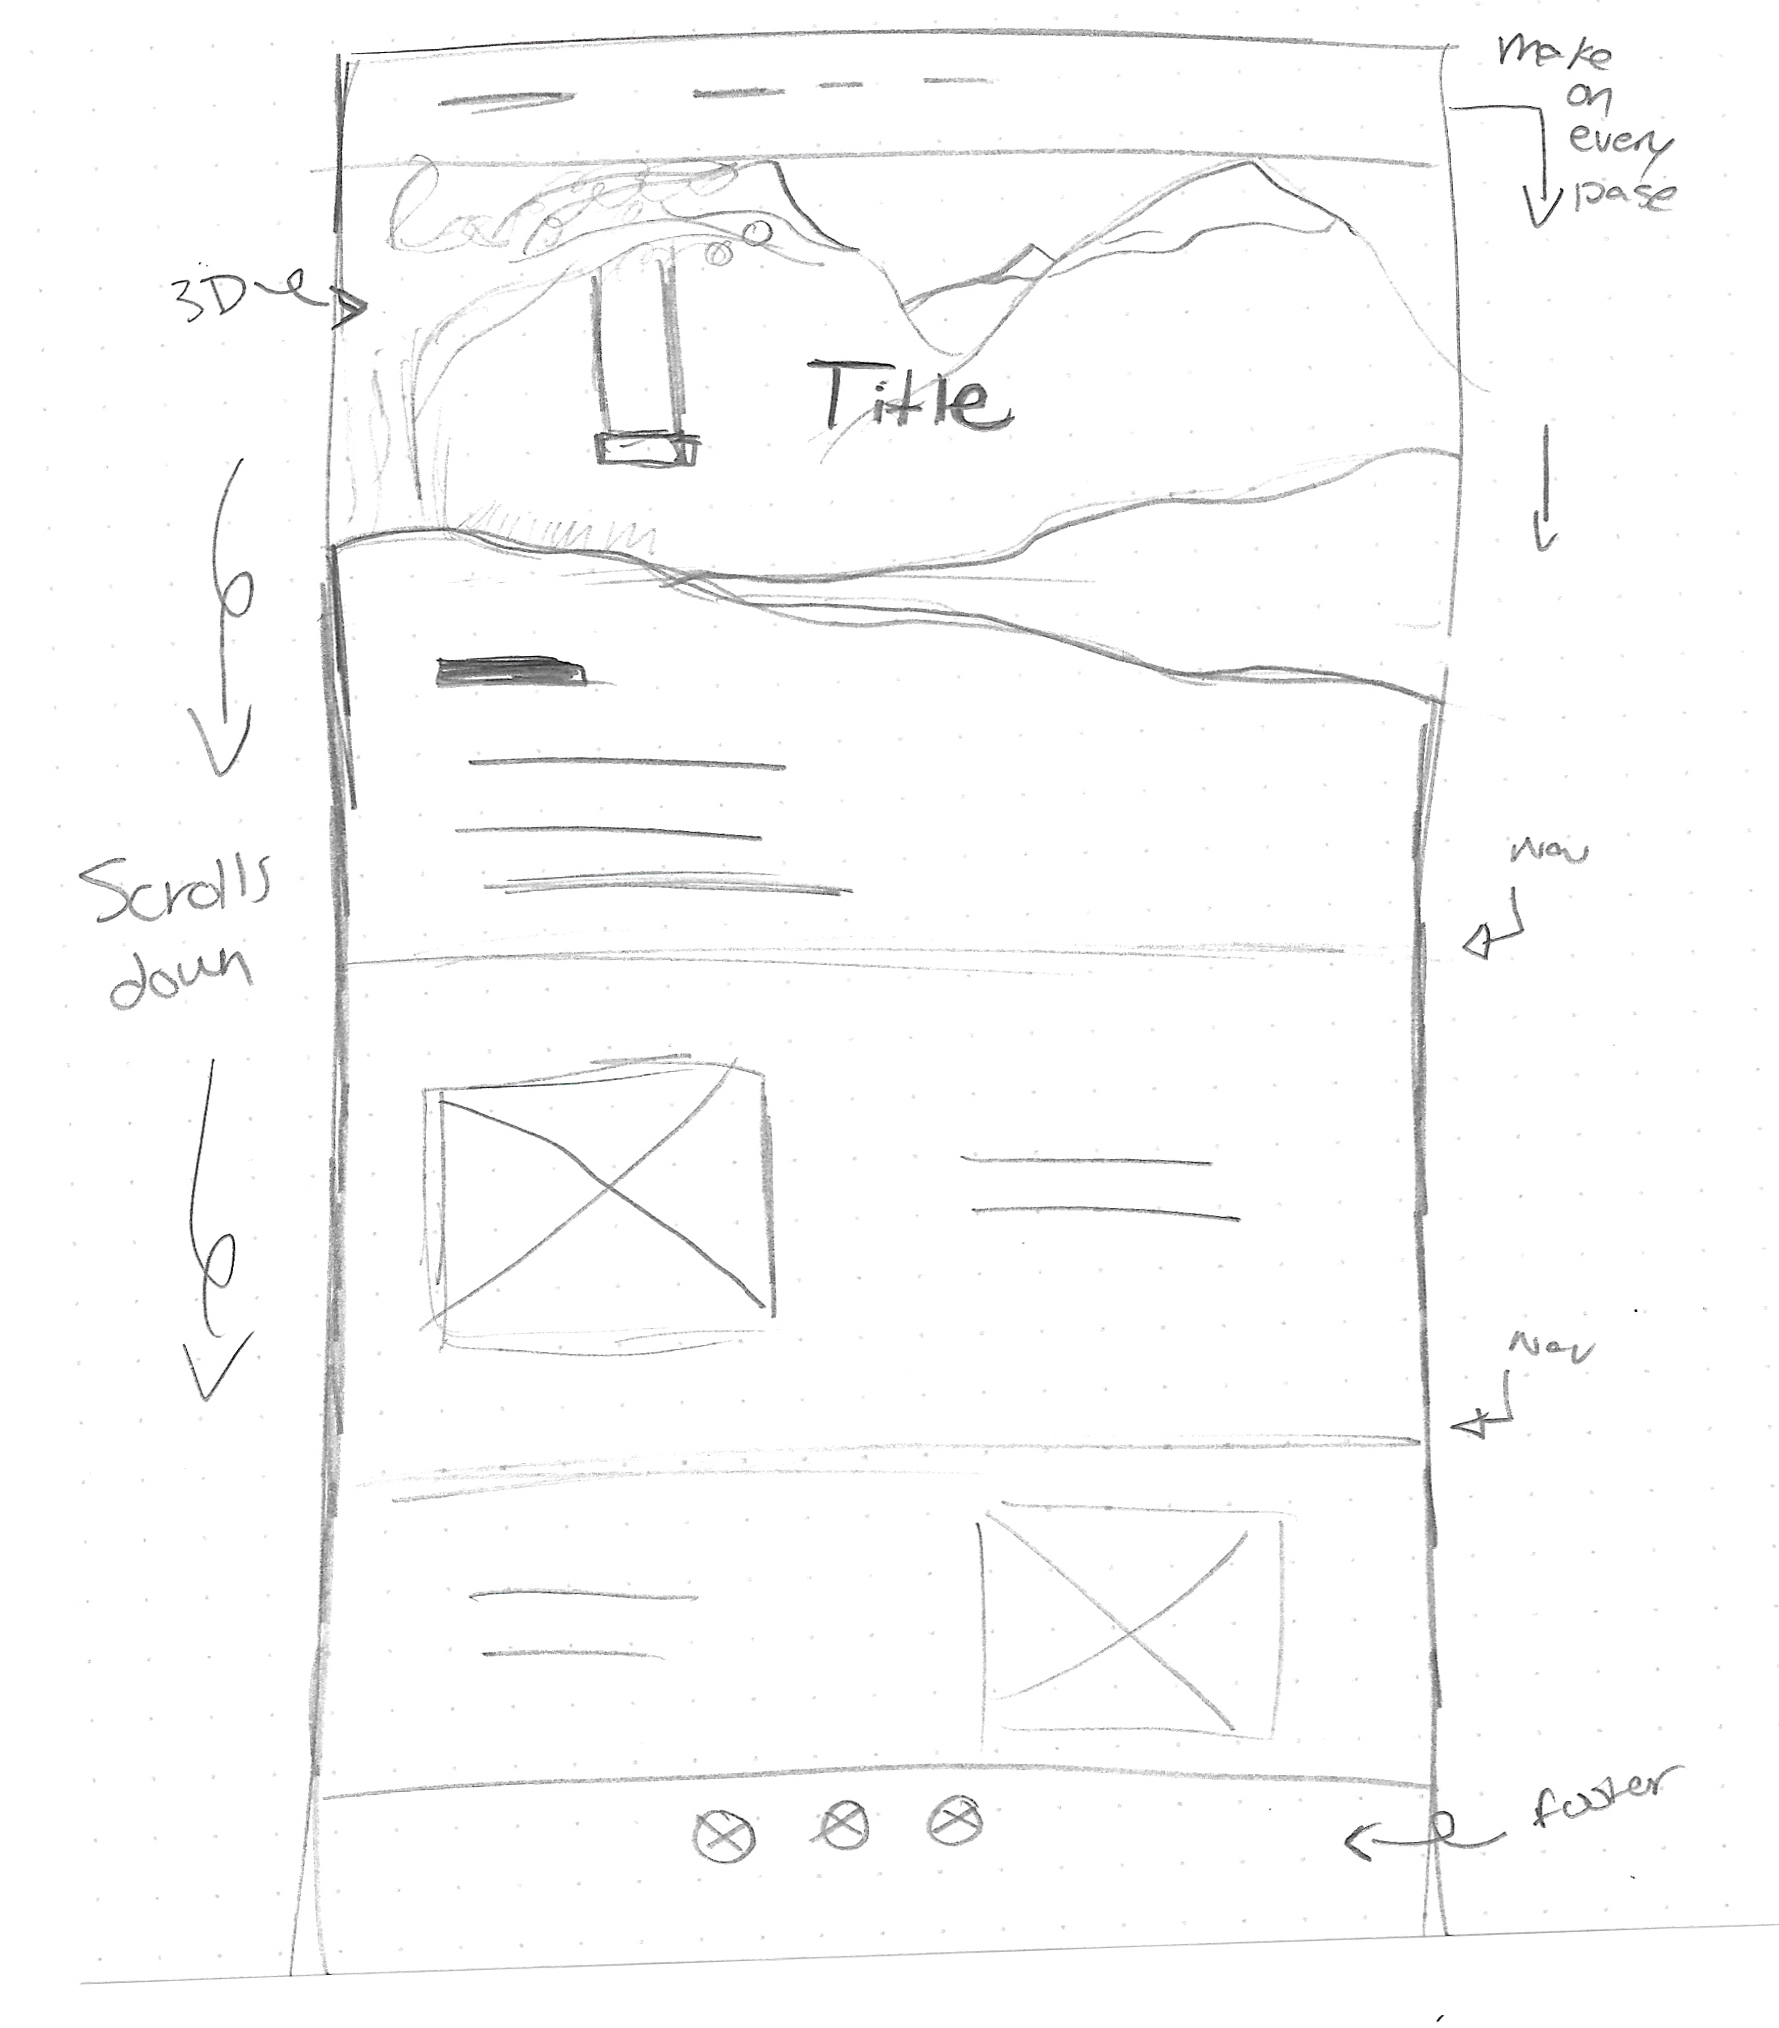 make
on
every
page
3D
Title
Scrolls
down
Nav
Nav
footer